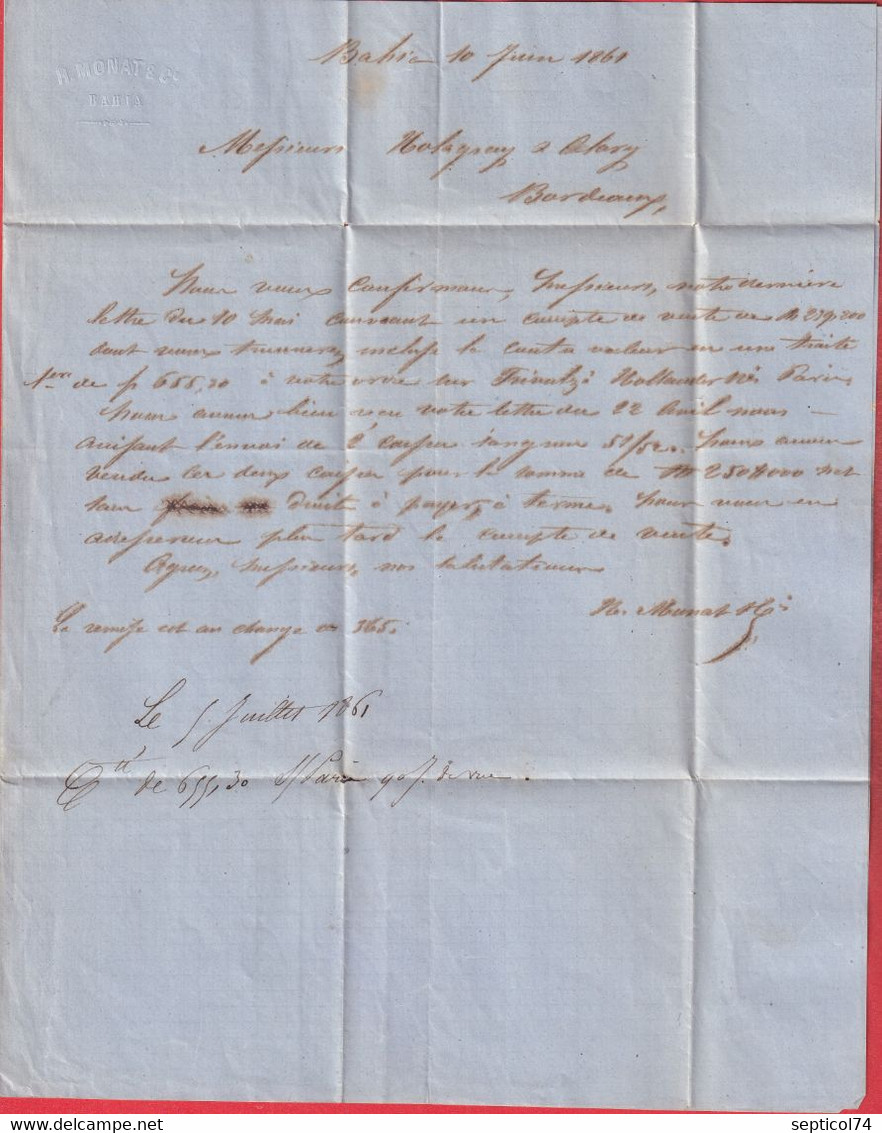 H. MONAT & Co
BAHIA
Bahia 10 Juin 1861
Messieurs Holagray & Alary
Bordeaux,
Nous vous confirmons, Messieurs, notre dernière
lettre du 10 Mai couvrant un compte de vente de Rs 239,200
dont vous trouverez incluse la contre valeur en une traite
1ere de f 655,30 à votre ordre sur Hollander Paris,
Nous avons bien reçu votre lettre du 22 Avril nous
avisant l'envoi de 2 caisses sangsues 51/52. Nous avons
vendu ces deux caisses pour la somme de Rs 250$000 net
sans droits à payer, à terme. Nous vous en
adresserons plus tard le compte de vente.
Agréez, Messieurs, nos salutations
H. Monat & Co
La remise est au change de 365.
Le 5 Juillet 1861
Tte de 655,30 s/ Paris 90 J. de vue.
septicol74